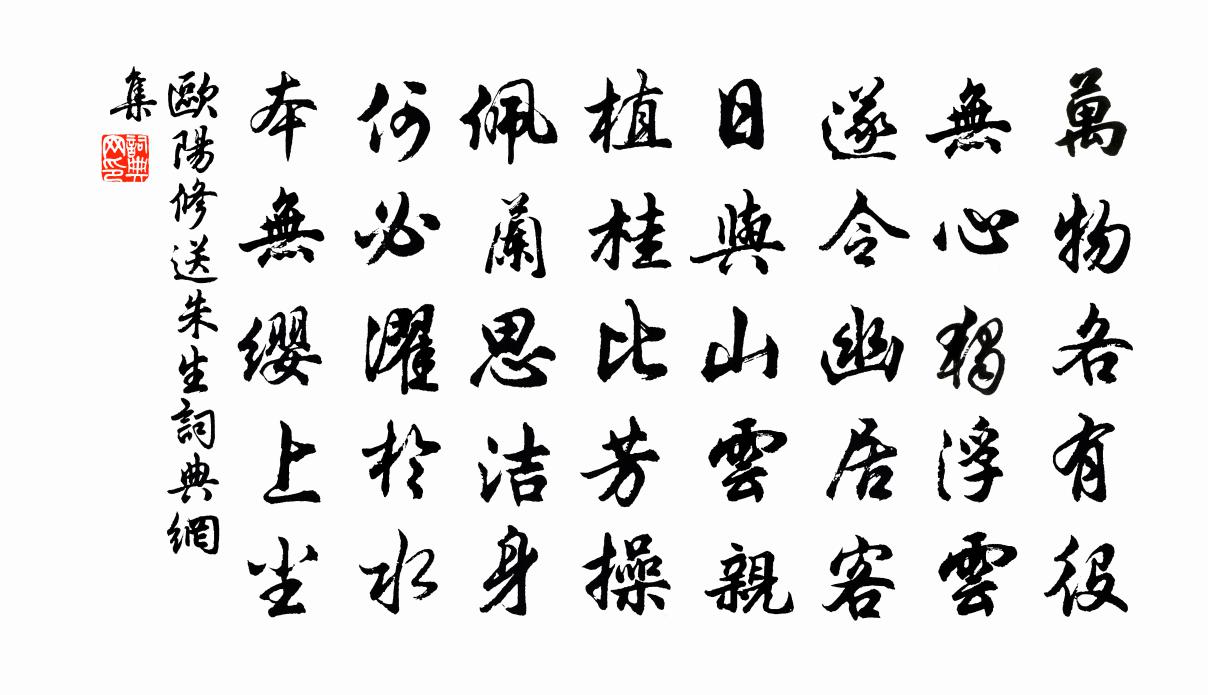 萬物各有役
無心獨浮雲
遂令幽居客
日與山雲親
植桂比芳操
佩蘭思洁身
何必濯於水
本無纓上尘
歐陽修送朱生詞典網
集
詞典網印